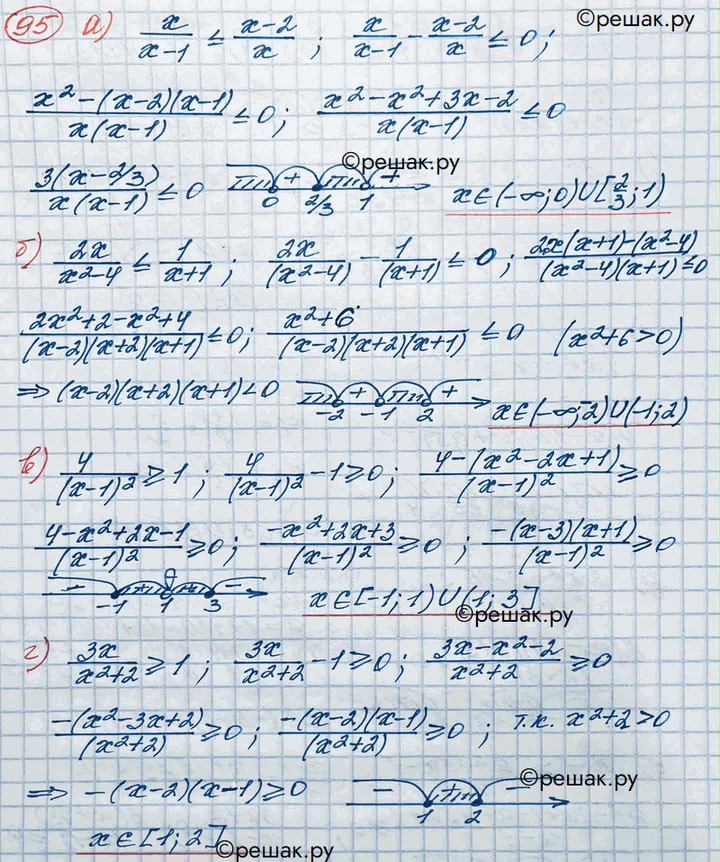 ©решак.ру
95 а) x/(x-1) ≤ (x-2)/x ; x/(x-1) - (x-2)/x ≤ 0 ;
(x²-(x-2)(x-1))/(x(x-1)) ≤ 0 ; (x²-x²+3x-2)/(x(x-1)) ≤ 0
©решак.ру
3(x-2/3)/(x(x-1)) ≤ 0 + + 0 2/3 1 x∈(-∞;0)∪[2/3;1)
б) 2x/(x²-4) ≤ 1/(x+1) ; 2x/(x²-4) - 1/(x+1) ≤ 0 ; (2x(x+1)-(x²-4))/((x²-4)(x+1)) ≤ 0
(2x²+2-x²+4)/((x-2)(x+2)(x+1)) ≤ 0 ; (x²+6)/((x-2)(x+2)(x+1)) ≤ 0 (x²+6>0)
⇒ (x-2)(x+2)(x+1)<0 + + -2 -1 2 x∈(-∞;-2)∪(-1;2)
в) 4/(x-1)² ≥ 1 ; 4/(x-1)² - 1 ≥ 0 ; (4-(x²-2x+1))/(x-1)² ≥ 0
(4-x²+2x-1)/(x-1)² ≥ 0 ; (-x²+2x+3)/(x-1)² ≥ 0 ; -(x-3)(x+1)/(x-1)² ≥ 0
- + + - -1 1 3 x∈[-1;1)∪(1;3]
©решак.ру
г) 3x/(x²+2) ≥ 1 ; 3x/(x²+2) - 1 ≥ 0 ; (3x-x²-2)/(x²+2) ≥ 0
-(x²-3x+2)/(x²+2) ≥ 0 ; -(x-2)(x-1)/(x²+2) ≥ 0 ; т.к. x²+2>0
©решак.ру
⇒ -(x-2)(x-1) ≥ 0 - + - 1 2
x∈[1;2]
©решак.ру